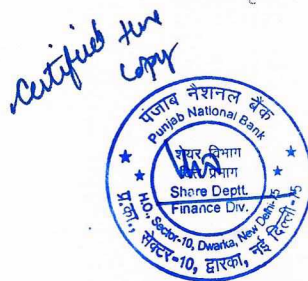 Certified true
copy
पंजाब नैशनल बैंक
Punjab National Bank
शेयर विभाग
वित्त प्रभाग
Share Deptt.
Finance Div.
H.O., Sector-10, Dwarka, New Delhi-75
प्र.का., सेक्टर-10, द्वारका, नई दिल्ली-75